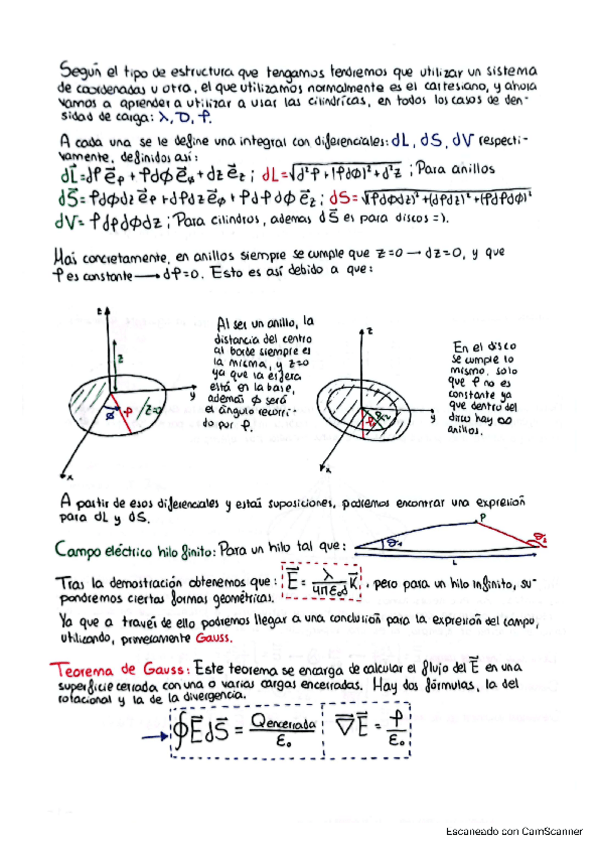 Según el tipo de estructura que tengamos tendremos que utilizar un sistema
de coordenadas u otra, el que utilizamos normalmente es el cartesiano, y ahora
vamos a aprender a utilizar a usar las cilíndricas, en todos los casos de den-
sidad de carga: λ, D, ρ.
A cada una se le define una integral con diferenciales: dL, dS, dV respecti-
vamente, definidos así:
dL⃗=dρ e⃗ρ + ρdϕ e⃗ϕ + dz e⃗z ; dL=√(d²ρ + (ρdϕ)² + d²z) ; Para anillos
dS⃗=ρdϕdz e⃗ρ + dρdz e⃗ϕ + ρdρdϕ e⃗z ; dS=√((ρdϕdz)²+(dρdz)²+(ρdρdϕ)²)
dV= ρdρdϕdz ; Para cilindros, ademas dS⃗ es para discos =).
Mas concretamente, en anillos siempre se cumple que z=0 → dz=0, y que
ρ es constante → dρ=0. Esto es así debido a que:
z
z
y
x
ϕ
ρ
z=0
Al ser un anillo, la
distancia del centro
al borde siempre es
la misma, y z=0
ya que la esfera
está en la base,
además ϕ será
el ángulo recorri-
do por ρ.
z
y
x
En el disco
se cumple lo
mismo, solo
que ρ no es
constante ya
que dentro del
disco hay ∞
anillos.
A partir de esos diferenciales y estas suposiciones, podremos encontrar una expresión
para dL y dS.
Campo eléctrico hilo finito: Para un hilo tal que:
P
L
Tras la demostración obtenemos que: E⃗ = λ/4πε₀d K⃗ , pero para un hilo infinito, su-
pondremos ciertas formas geométricas.
Ya que a través de ello podremos llegar a una conclusión para la expresión del campo,
utilizando, primeramente Gauss.
Teorema de Gauss: Este teorema se encarga de calcular el flujo del E⃗ en una
superficie cerrada con una o varias cargas encerradas. Hay dos fórmulas, la del
rotacional y la de la divergencia.
→ ∮E⃗dS⃗ = Qencerrada/ε₀
∇⃗E⃗ = ρ/ε₀
Escaneado con CamScanner